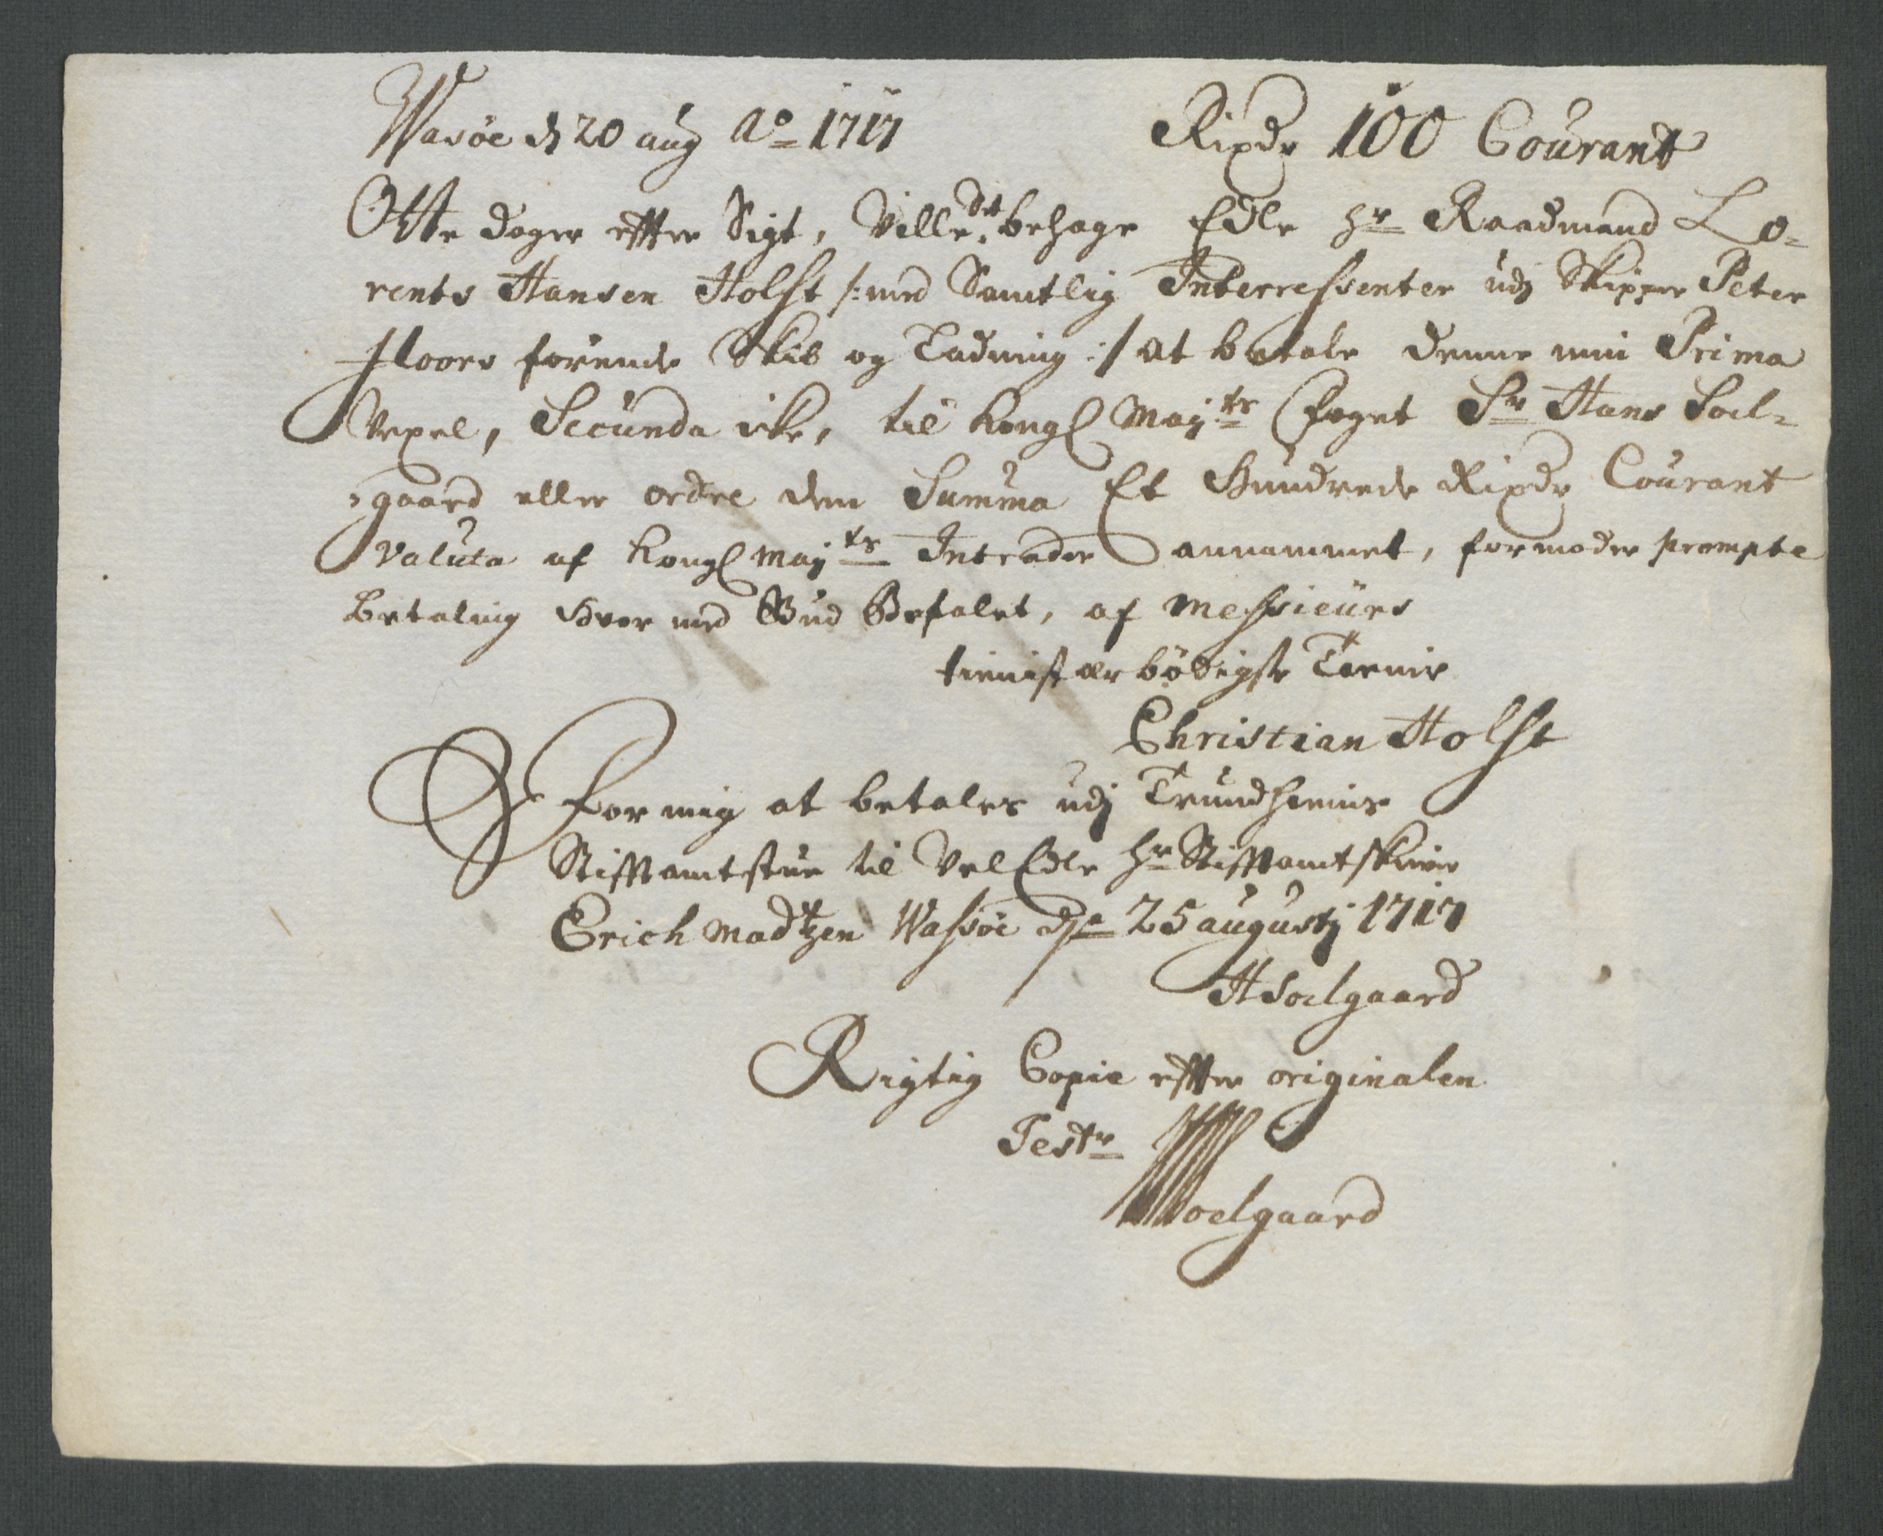 Wasöe d 20 aug Ao 1717 Rixdr 100 Courant
Otte dager effter Sigt, Ville det behage Edle Hr Raadmand Lo=
rents Hansen Holst /: med Samtlig Interressenter udj Skipper Peter
Floors förende Skib og Ladning :/ at betale denne min Prima
Vexel, Secunda icke, til Kongl Mayts foget Sr Hans Soel=
=gaard eller ordre den Summa Et Hundrede Rixdr Courant
Valuta af Kongl Mayts Intrader annammet, formoder prompte
Betaling Hvor med Gud Befalet, af Messieurs
tienist ærbödigste Tienir
Christian Holst
For mig at betales udj Trundhiems
Stifftamtstue til VelEdle Hr Stifftamtskriver
Erich Madtzen Wasöe de 25 augustj 1717
HSoelgaard
Rigtig Copie effter originalen
Testr
HSoelgaard